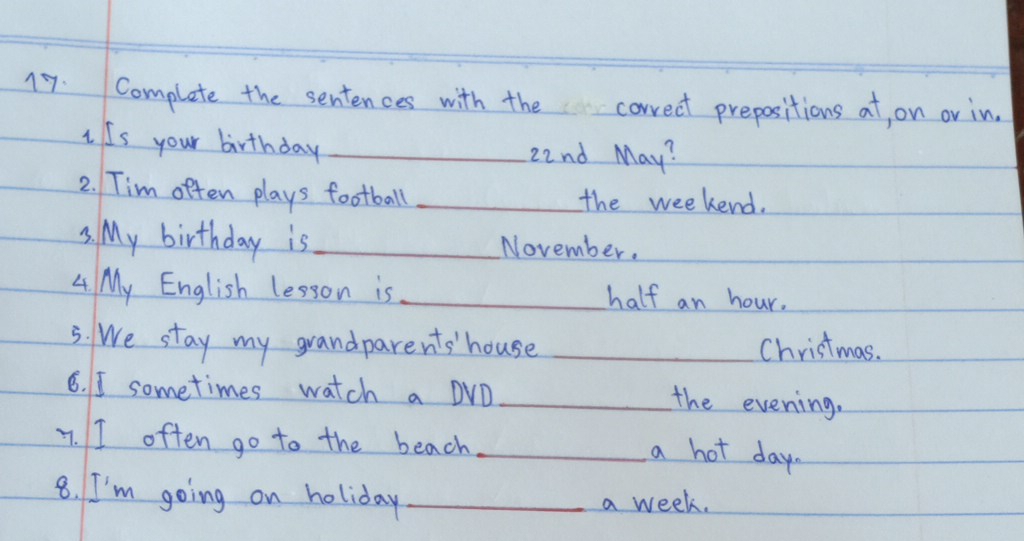 17. Complete the sentences with the correct prepositions at, on or in.
1. Is your birthday __________ 22nd May?
2. Tim often plays football __________ the weekend.
3. My birthday is __________ November.
4. My English lesson is __________ half an hour.
5. We stay my grandparents' house __________ Christmas.
6. I sometimes watch a DVD __________ the evening.
7. I often go to the beach __________ a hot day.
8. I'm going on holiday __________ a week.